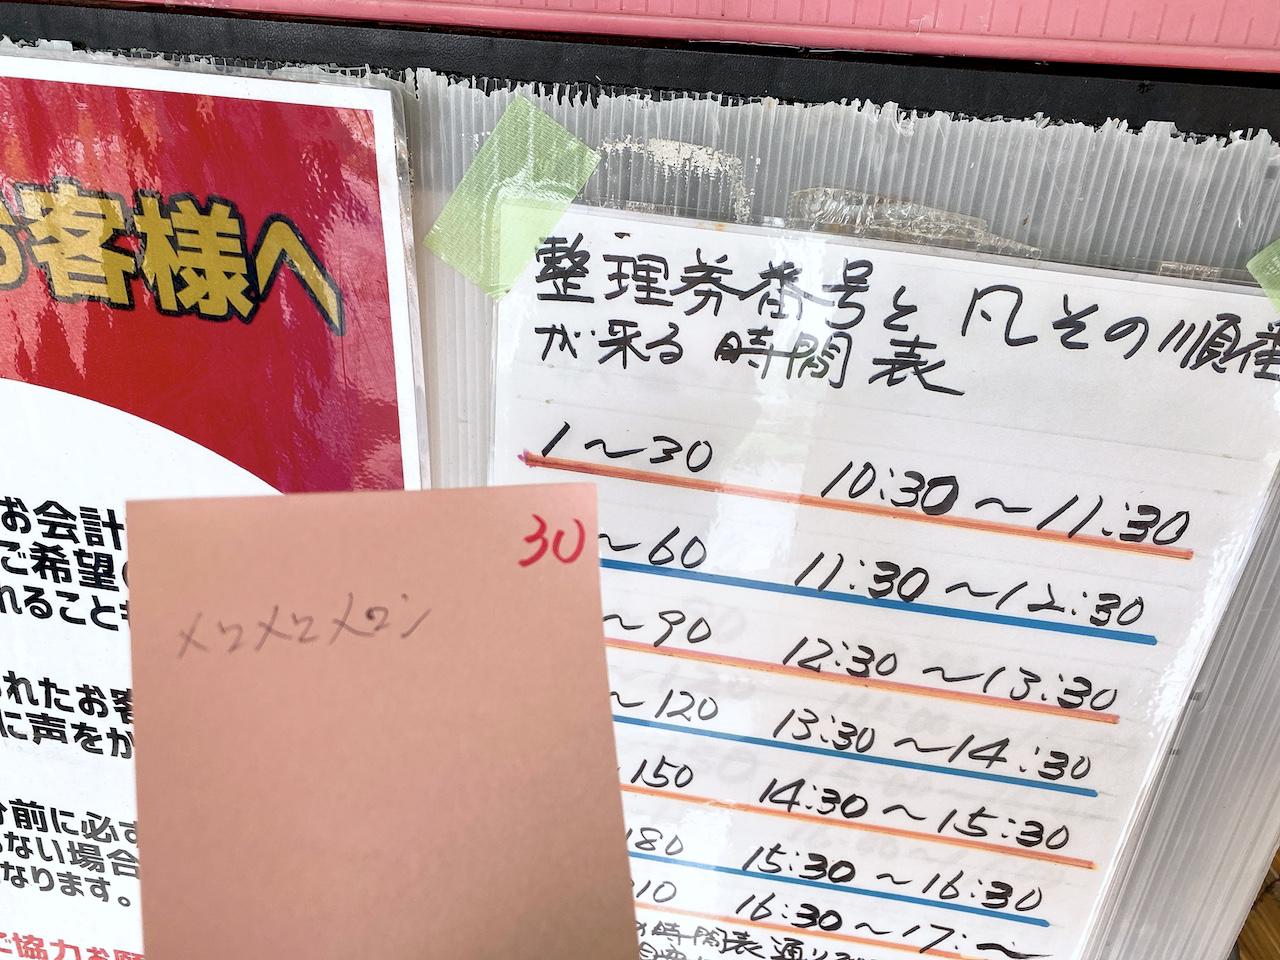 お客様へ
お会計
ご希望
れること
られたお客
に声をか
分前に必ず
ない場合
なります。
ご協力お願
30
メワメワメワン
整理券番号と凡その順番
が来る時間表
1〜30 10:30〜11:30
〜60 11:30〜12:30
〜90 12:30〜13:30
〜120 13:30〜14:30
150 14:30〜15:30
180 15:30〜16:30
10 16:30〜17:〜
時間表通り